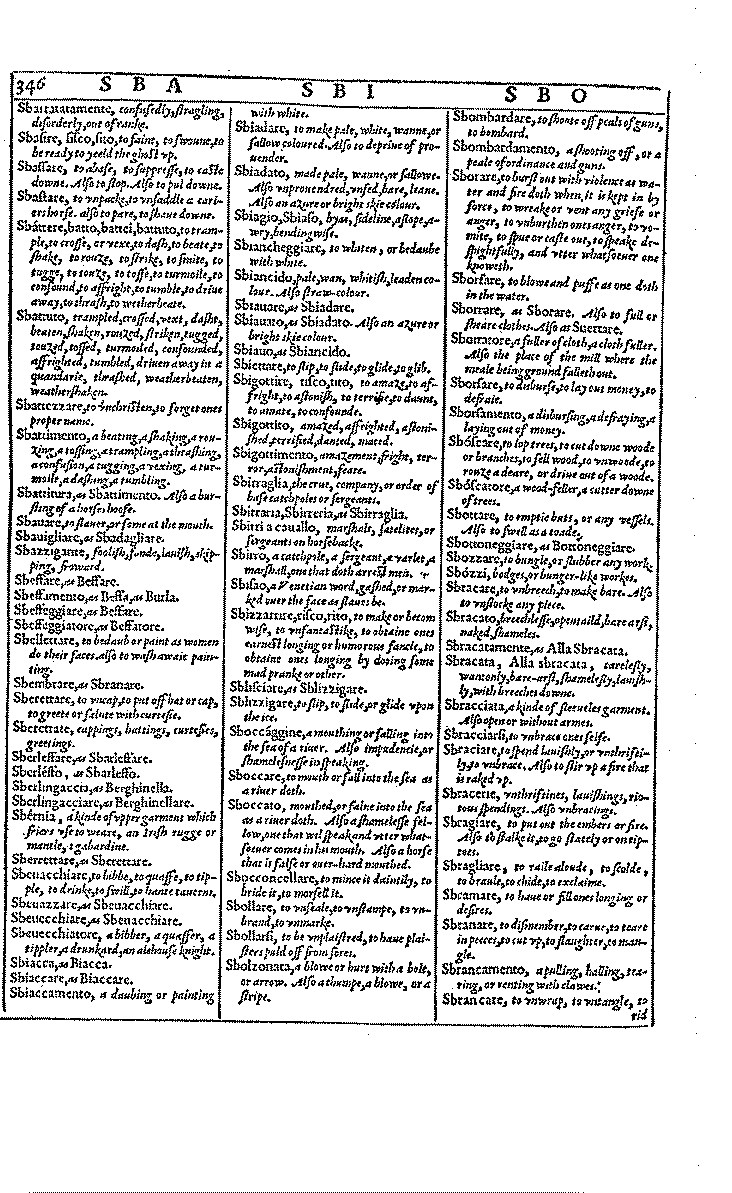 346 S B A S B I S B O
Sbarratamente, confusedly, stragling,
disorderly, out of ranke.
Sbasire, sisco, sito, to faint, to swoune, to
be ready to yeeld the ghost vp.
Sbassare, to abase, to suppresse, to caste
downe. Also to stop. Also to pul downe.
Sbastare, to vnpacke, to vnsaddle a cari-
ers horse. also to pare, to shaue downe.
Sbáttere, batto, battei, battuto, to tram-
ple, to crosse, or vexe, to dash, to beate, to
shake, to rouze, to strike, to smite, to
tugge, to touze, to tosse, to turmoile, to
confound, to affright, to tumble, to driue
away, to thrash, to wetherbeate.
Sbattuto, trampled, crossed, vext, dasht,
beaten, shaken, rouzed, striken, tugged,
touzed, tossed, turmoiled, confounded,
affrighted, tumbled, driuen away in a
quandarie, thrashed, weatherbeaten,
weathershaken.
Sbattezzare, to vnchristen, to forget ones
proper name.
Sbattimento, a beating, a shaking, a rou-
zing, a tossing, a trampling, a thrashing,
a confusion, a tugging, a vexing, a tur-
moile, a dashing, a tumbling.
Sbattitura, as Sbattimento. Also a bur-
sting of a horses hoofe.
Sbauare, to slauer, or fome at the mouth.
Sbauigliare, as Sbadagliare.
Sbazzigante, foolish, fonde, lauish, skip-
ping, froward.
Sbeffare, as Beffare.
Sbeffamento, as Beffa, as Burla.
Sbeffeggiare, as Beffare.
Sbeffeggiatore, as Beffatore.
Sbellettare, to bedaub or paint as women
do their faces. Also to wash awaie pain-
ting.
Sbembrare, as Sbranare.
Sberettare, to vncap, to put off hat or cap,
to greete or salute with curtesie.
Sberettate, cappings, hattings, curtesies,
greetings.
Sberleffare, as Sbarleffare.
Sberléffo, as Sbarleffo.
Sberlingaccia, as Berghinella.
Sberlingacciare, as Berghinellare.
Sbérnia, a kinde of vpper garment which
friers vse to weare, an Irish rugge or
mantle, a gabardine.
Sberrettare, as Sberettare.
Sbeuacchiare, to bibbe, to quaffe, to tip-
ple, to drinke, to swill, to hante tauerns.
Sbeuazzare, as Sbeuacchiare.
Sbeuecchiare, as Sbeuacchiare.
Sbeuecchiatore, a bibber, a quaffer, a
tippler, a drunkard, an alehouse knight.
Sbiacca, as Biacca.
Sbiaccare, as Biaccare.
Sbiaccamento, a daubing or painting
with white.
Sbiadare, to make pale, white, wanne, or
fallow coloured. Also to depriue of pro-
uender.
Sbiadato, made pale, wanne, or fallowe.
Also vnprouendred, vnfed, bare, leane.
Also an azure or bright skie colour.
Sbiagio, Sbiaso, byas, sideline, aslope, a-
wry, bending wise.
Sbiancheggiare, to whiten, or bedaube
with white.
Sbiancido, pale, wan, whitish, leaden co-
lour. Also straw-colour.
Sbiauare, as Sbiadare.
Sbiauato, as Sbiadato. Also an azure or
bright skie colour.
Sbiauo, as Sbiancido.
Sbiettare, to slip, to slide, to glide, to glib.
Sbigottire, tisco, tito, to amaze, to af-
fright, to astonish, to terrifie, to daunt,
to amate, to confounde.
Sbigottito, amazed, affrighted, astoni-
shed, terrified, danted, mated.
Sbigottimento, amazement, fright, ter-
ror, astonishment, feare.
Sbirraglia, the crue, company, or order of
base catchpoles or sergeants.
Sbirraria, Sbirreria, as Sbirraglia.
Sbirri a cauallo, marshals, satelites, or
sergeants on horsebacke.
Sbirro, a catchpole, a sergeant, a varlet, a
marshall, one that doth arrest men.
Sbisao, a Venetian word, gashed, or mar-
ked ouer the face as slaues be.
Sbizzarrire, risco, rito, to make or becom
wise, to vnfantastike, to obtaine ones
earnest longing or humorous fancie, to
obtaine ones longing by doing some
mad pranke or other.
Sblisciare, as Sblizzigare.
Sblizzigare, to slip, to slide, or glide vpon
the ice.
Sboccággine, a mouthing or falling into
the sea of a riuer. Also impudencie, or
shamelesnesse in speaking.
Sboccare, to mouth or fall into the sea as
a riuer doth.
Sboccato, mouthed, or falne into the sea
as a riuer doth. Also a shamelesse fel-
low, one that wil speak and vtter what-
soeuer comes in his mouth. Also a horse
that is false or ouer-hard mouthed.
Sbocconcellare, to mince it daintily, to
bride it, to morsell it.
Sbollare, to vnseale, to vnstampe, to vn-
brand, to vnmarke.
Sbollarsi, to be vnplaistred, to haue plai-
sters puld off from sores.
Sbolzonata, a blowe or hurt with a bolt,
or arrow. Also a thumpe, a blowe, or a
stripe.
Sbombardare, to shoote off peals of guns,
to bombard.
Sbombardamento, a shooting off, or a
peale of ordinance and guns.
Sborare, to burst out with violence as wa-
ter and fire doth when, it is kept in by
force, to wreake or vent any griefe or
anger, to vnburthen ones anger, to vo-
mite, to spue or caste out, to speake de-
spightfully, and vtter whatsoeuer one
knoweth.
Sborfare, to blowe and puffe as one doth
in the water.
Sborrare, as Sborare. Also to full or
sheare clothes. Also as Suerrare.
Sborratore, a fuller of cloth, a cloth fuller.
Also the place of the mill where the
meale being ground falleth out.
Sborsare, to disburse, to lay out money, to
defraie.
Sborsamento, a disbursing, a defraying, a
laying out of money.
Sbóscare, to lop trees, to cut downe woode
or branches, to fell wood, to vnwoode, to
rouze a deare, or driue out of a woode.
Sbóscatore, a wood-feller, a cutter downe
of trees.
Sbottare, to emptie buts, or any vessels.
Also to swell as a toade.
Sbottoneggiare, as Bottoneggiare.
Sbozzare, to bungle, or slubber any work.
Sbózzi, bodges, or bunger-like workes.
Sbracare, to vnbreech, to make bare. Also
to vnstocke any piece.
Sbracato, breechlesse, open taild, bare arst,
naked, shameles.
Sbracatamente, as Alla Sbracata.
Sbracata, Alla sbracata, carelesly,
wantonly, bare-arst, shamelesly, lauish-
ly, with breeches downe.
Sbracciata, a kinde of sleeueles garment.
Also open or without armes.
Sbracciarsi, to vnbrace ones selfe.
Sbraciare, to spend lauishly, or vnthrifti-
ly, to vnbrace. Also to stir vp a fire that
is raked vp.
Sbracerie, vnthriftines, lauishings, rio-
tous spendings. Also vnbracings.
Sbragiare, to put out the embers or fire.
Also to stalke it, to go stately or on tip-
toes.
Sbragliare, to raile aloude, to scolde,
to braule, to chide, to exclaime.
Sbramare, to haue or fill ones longing or
desires.
Sbranare, to dismember, to carue, to teare
in peeces, to cut vp, to slaughter, to man-
gle.
Sbrancamento, a pulling, halling, tea-
ring, or renting with clawes.
Sbrancare, to vnwrap, to vntangle, to
rid